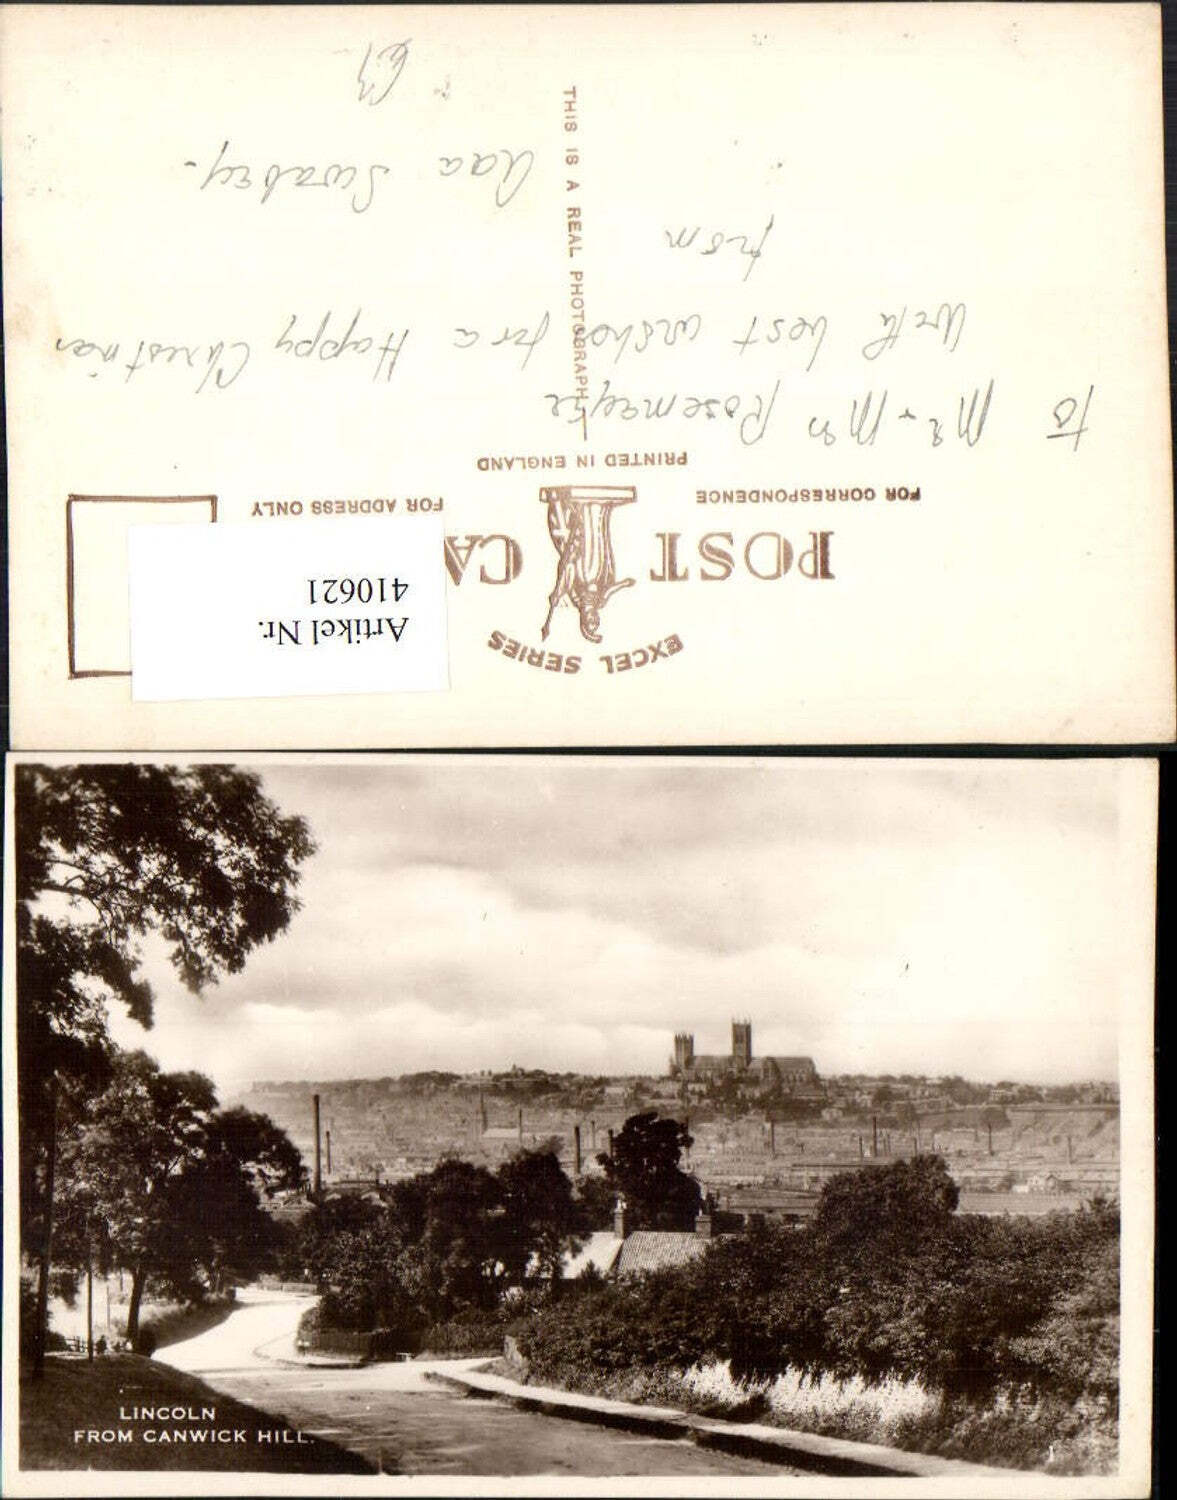 EXCEL SERIES
POST CA
FOR CORRESPONDENCE
FOR ADDRESS ONLY
PRINTED IN ENGLAND
THIS IS A REAL PHOTOGRAPH
Artikel Nr.
410621
To Mr + Mrs
With best wishes for a Happy Christmas
from
LINCOLN
FROM CANWICK HILL.